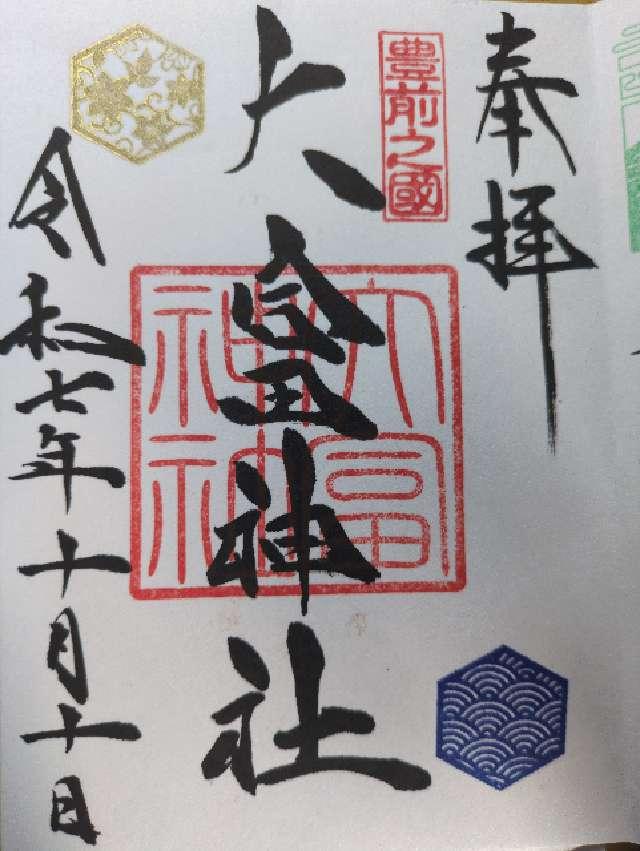 奉拝
豊前之國
大富神社
大富神社
令和七年十月十日